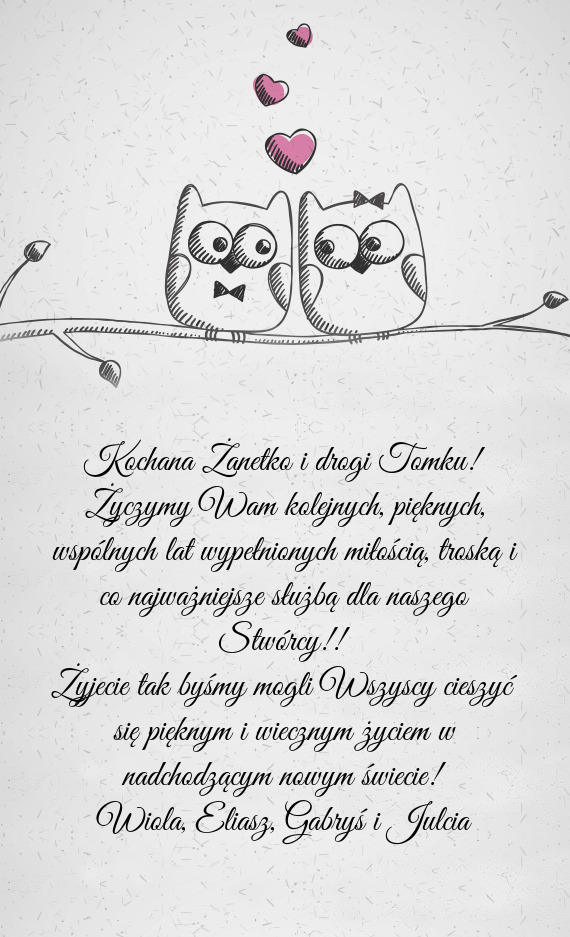 Kochana Żanetko i drogi Tomku!
Życzymy Wam kolejnych, pięknych,
wspólnych lat wypełnionych miłością, troską i
co najważniejsze służbą dla naszego
Stwórcy!!
Żyjecie tak byśmy mogli Wszyscy cieszyć
się pięknym i wiecznym życiem w
nadchodzącym nowym świecie!
Wiola, Eliasz, Gabryś i Julcia